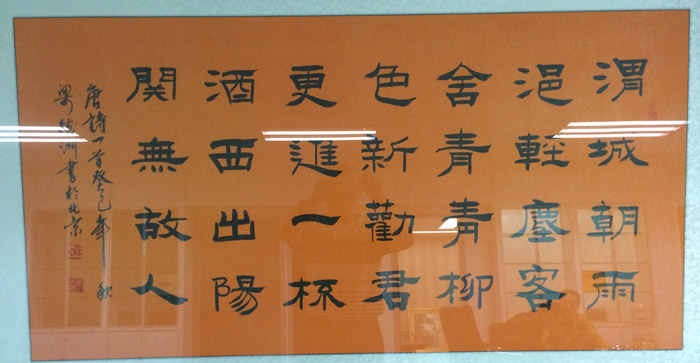 渭城朝雨
浥輕塵客
舍青青柳
色新勸君
更進一杯
酒西出陽
関無故人
唐詩一首癸巳年秋
梁洲書於北京